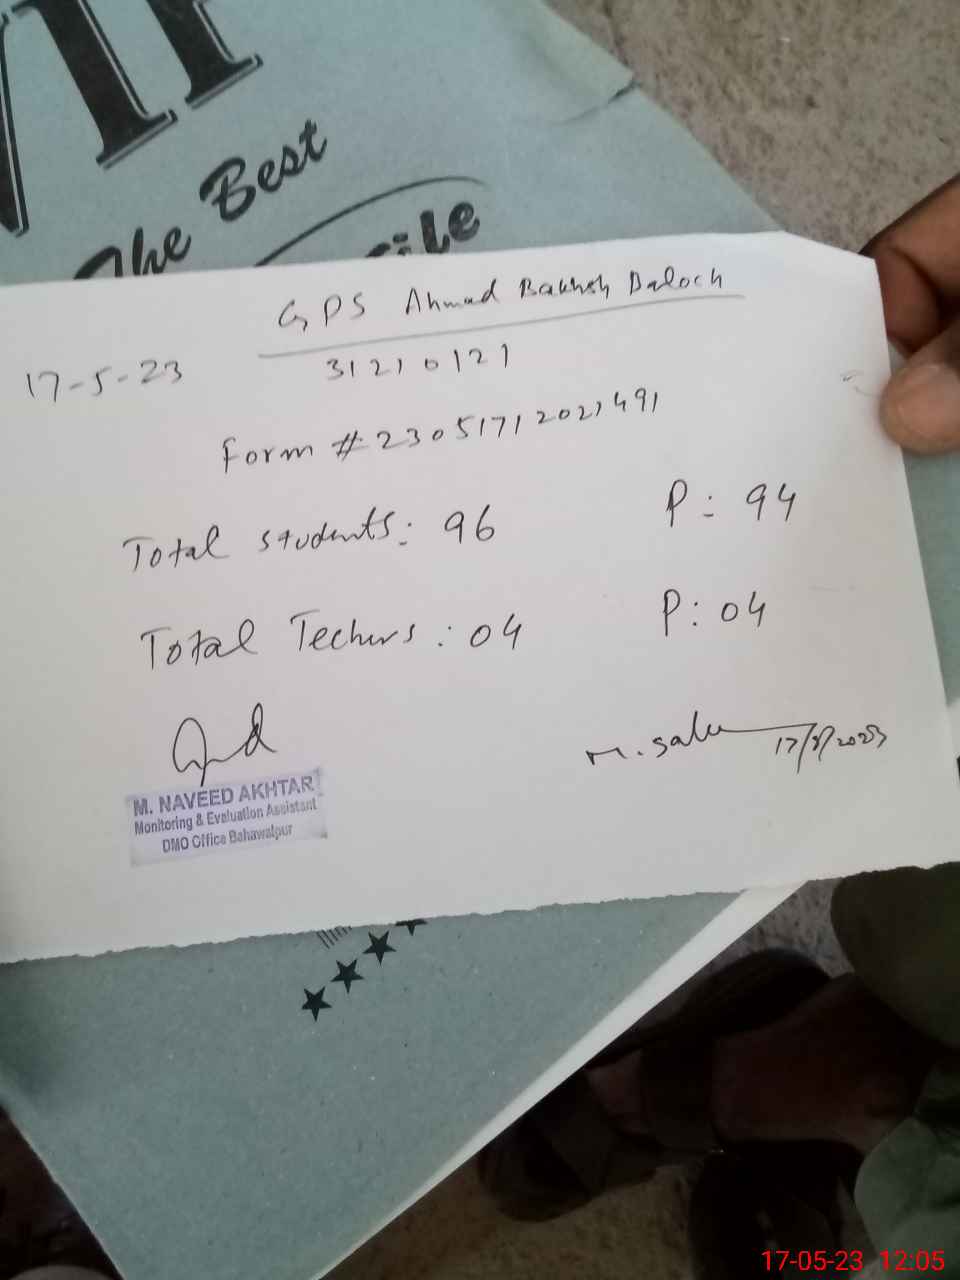 The Best
GPS Ahmad Bakhsh Baloch
17-5-23
31210121
Form # 23051712021491
Total students: 96 P: 94
Total Techers: 04 P: 04
M. NAVEED AKHTAR
Monitoring & Evaluation Assistant
DMO Office Bahawalpur
17/5/2023
17-05-23 12:05